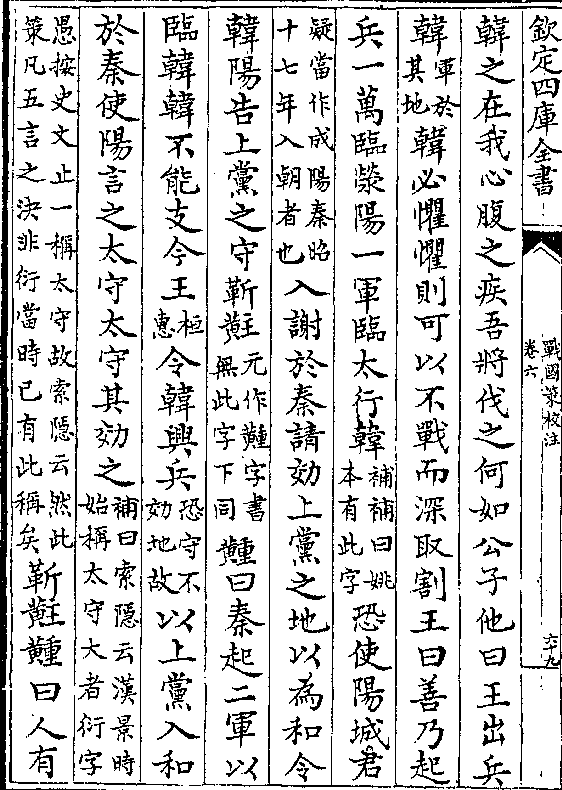 欽定四庫全書
戰國策校注
卷六
六十九
韓之在我心腹之疾吾將伐之何如公子他曰王出兵
韓軍於其地韓必懼懼則可以不戰而深取割王曰善乃起
兵一萬臨滎陽一軍臨太行韓補補曰姚本有此字恐使陽城君
疑當作成陽秦昭十七年入朝者也入謝於秦請効上黨之地以為和令
韓陽告上黨之守靳䵃元作䵯字書無此字下同䵯曰秦起二軍以
臨韓韓不能支今王桓惠令韓興兵恐守不効地故以上黨入和
於秦使陽言之太守太守其効之補曰索隱云漢景時始稱太守大者衍字
愚按史文止一稱太守故索隱云然此策凡五言之決非衍當時已有此稱矣靳䵃䵯曰人有